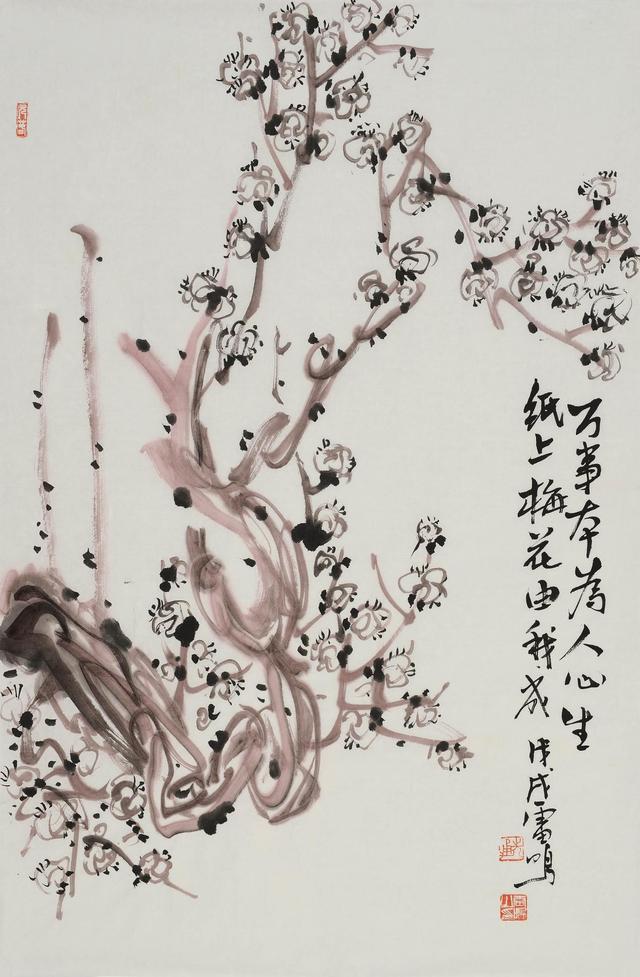 万事本為人心生
纸上梅花由我成
戊戌雷鸣